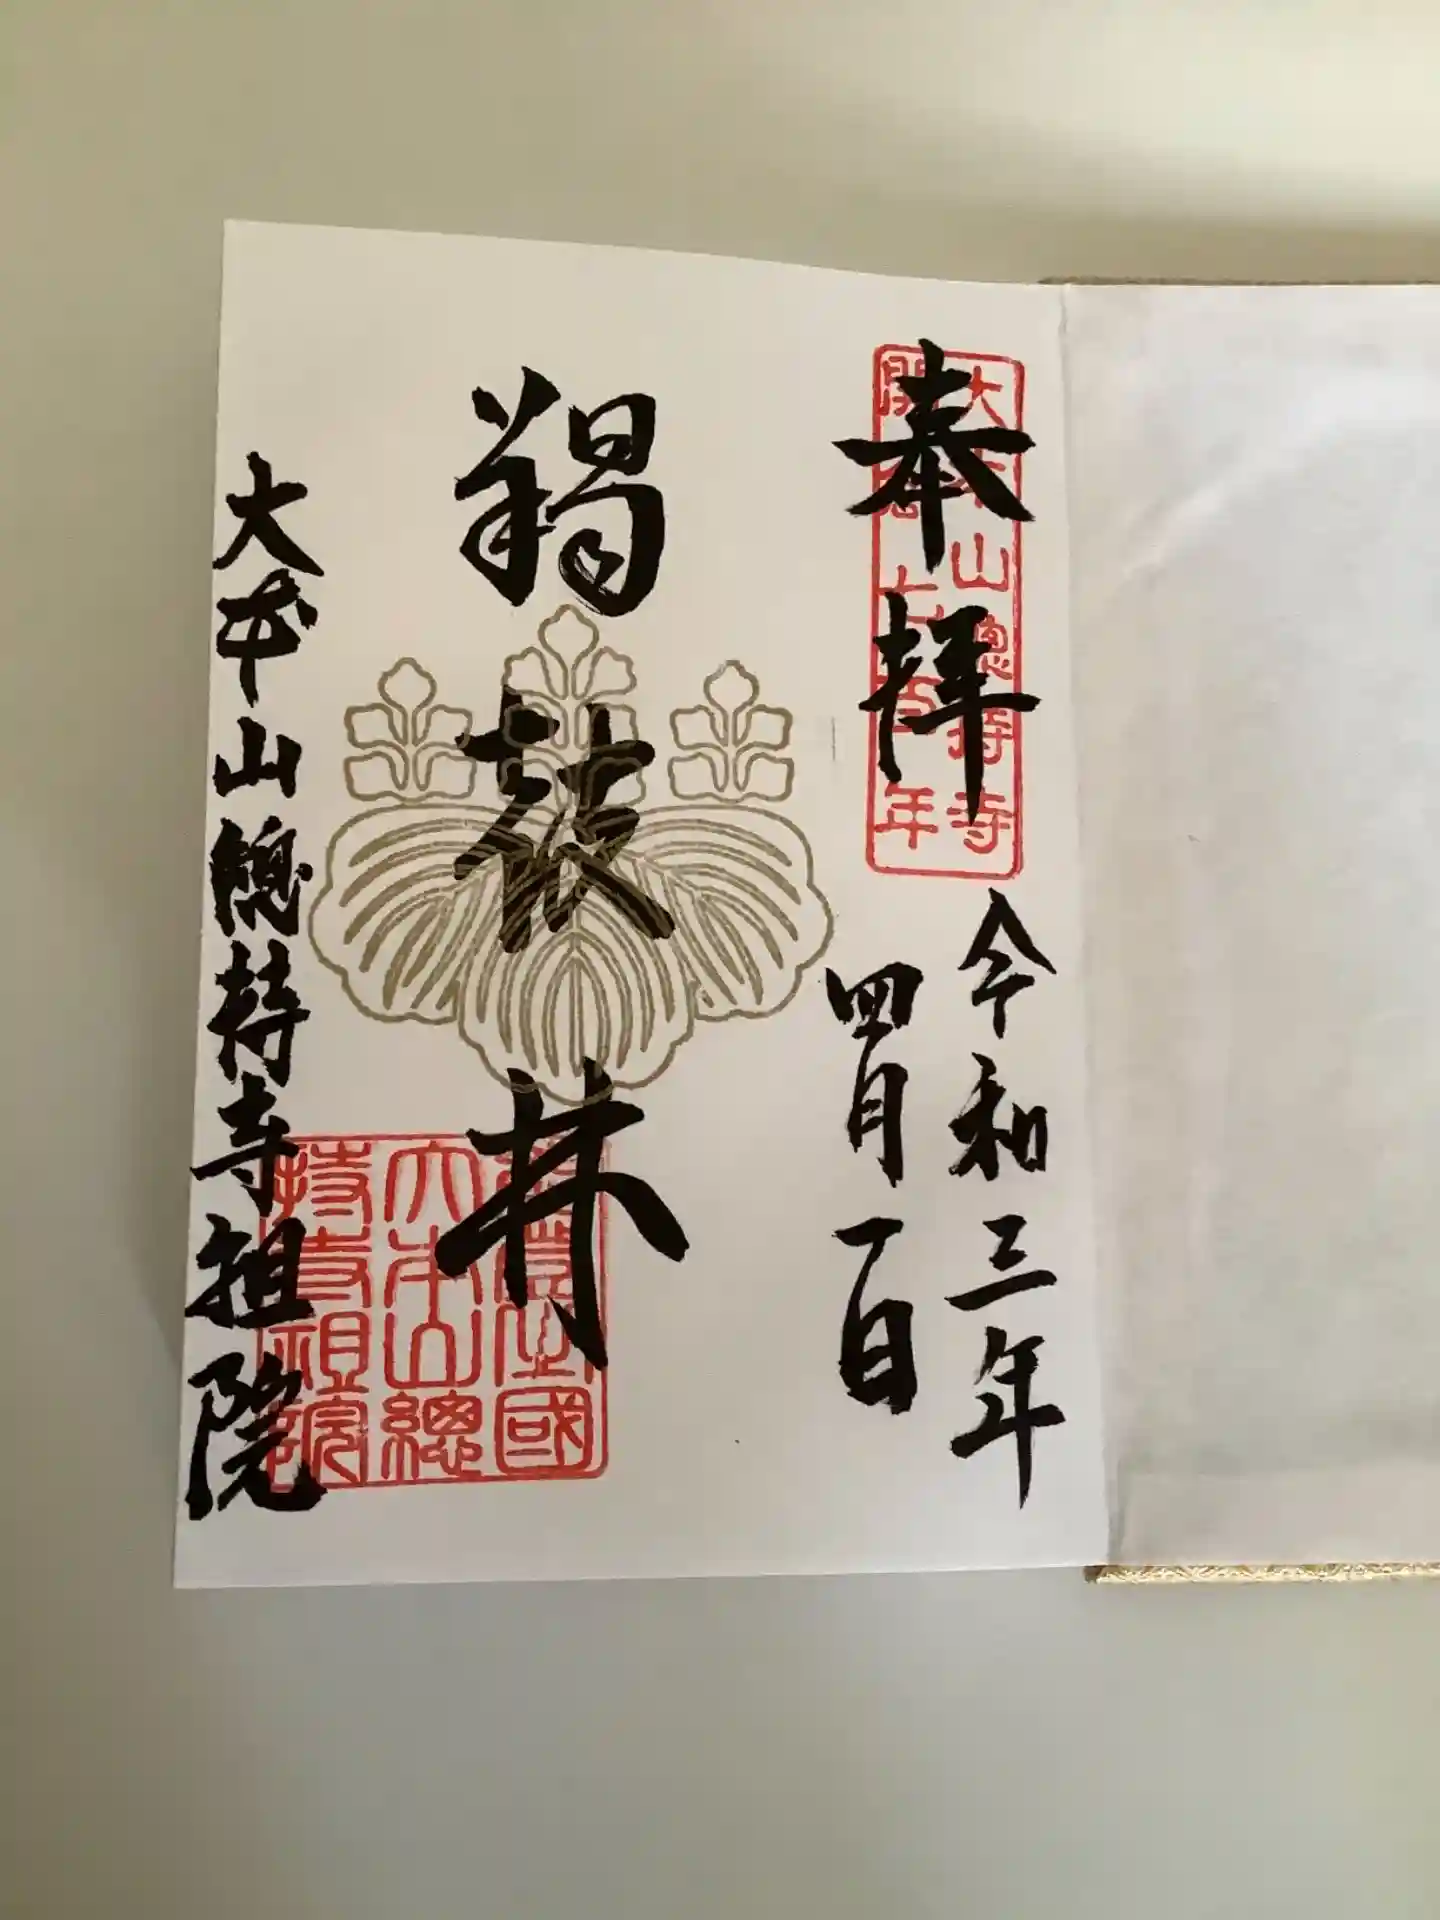 奉拝
大本山總持寺
開創七百年
令和三年
四月一日
羯鼓林
能登之國
大本山總
持寺祖院
大本山總持寺祖院